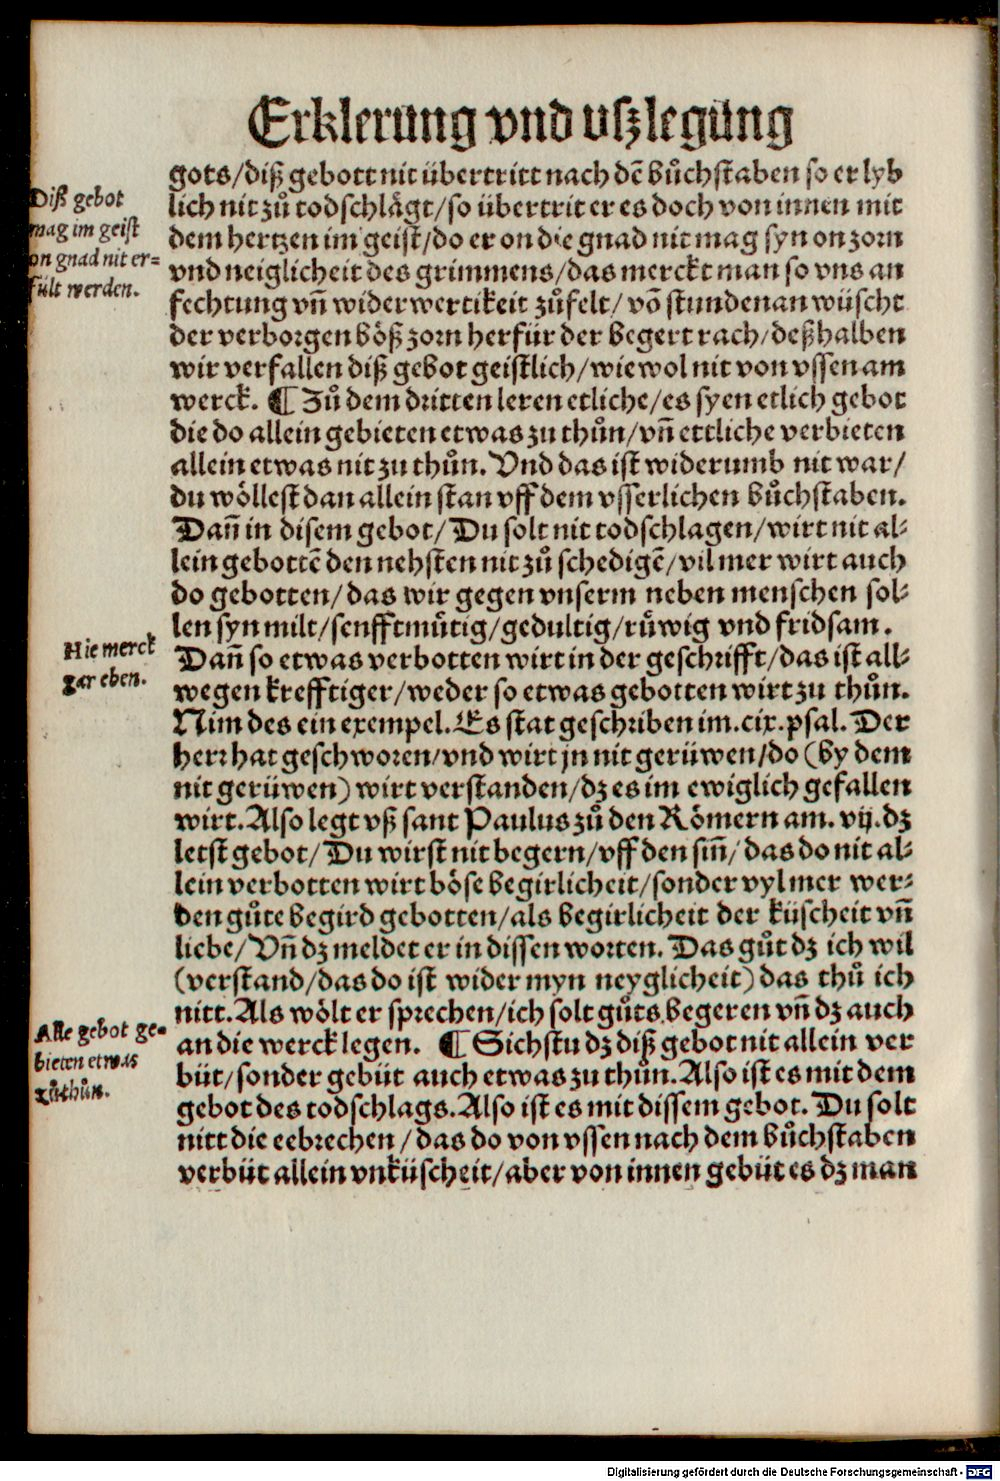 Erklerung vnd vſzlegung
gots/diß gebott nit übertritt nach dē bůchſtaben ſo er lyb
lich nit zů todſchlågt/ſo übertrit er es doch von innen mit
dem hertzen im geiſt/do er on die gnad nit mag ſyn on zorn
vnd neiglicheit des grimmens/das merckt man ſo vns an
fechtung vñ widerwertikeit zůfelt/vō ſtundenan wüſcht
der verborgen böß zorn herfür der begert rach/deßhalben
wir verfallen diß gebot geiſtlich/wiewol nit von vſſen am
werck. ¶ Zů dem dritten leren etliche/es ſyen etlich gebot
die do allein gebieten etwas zu thůn/vñ ettliche verbieten
allein etwas nit zu thůn. Vnd das iſt widerumb nit war/
du wöllest dan allein ſtan vff dem vſſerlichen bůchſtaben.
Dañ in diſem gebot/Du ſolt nit todſchlagen/wirt nit al⸗
lein gebottē den nehſten nit zů ſchedigē/vil mer wirt auch
do gebotten/das wir gegen vnſerm neben menſchen ſol⸗
len ſyn milt/ſenfftmůtig/gedultig/růwig vnd fridſam.
Dañ ſo etwas verbotten wirt in der geſchrifft/das iſt all⸗
wegen krefftiger/weder ſo etwas gebotten wirt zu thůn.
Nim des ein exempel. Es ſtat geſchriben im.cix.pſal. Der
herr hat geſchworen/vnd wirt jn nit gerüwen/do (by dem
nit gerüwen) wirt verſtanden/dz es im ewiglich gefallen
wirt. Alſo legt vß ſant Paulus zů den Römern am. vij. dz
letſt gebot/Du wirſt nit begern/vff den ſiñ/das do nit al⸗
lein verbotten wirt böſe begirlicheit/ſonder vyl mer wer⸗
den gůte begird gebotten/als begirlicheit der küſcheit vñ
liebe/Vñ dz meldet er in diſſen worten. Das gůt dz ich wil
(verſtand/das do iſt wider myn neyglicheit) das thů ich
nitt. Als wölt er ſprechen/ich ſolt gůts begeren vñ dz auch
an die werck legen. ¶ Sichſtu dz diß gebot nit allein ver
büt/ſonder gebüt auch etwas zu thůn. Alſo iſt es mit dem
gebot des todſchlags. Alſo iſt es mit diſſem gebot. Du ſolt
nitt die eebrechen/das do von vſſen nach dem bůchſtaben
verbüt allein vnküſcheit/aber von innen gebüt es dz man
Diß gebot
mag im geiſt
on gnad nit er⸗
fült werden.
Hie merck
gar eben.
Alle gebot ge⸗
bieten etwas
zůthůn.
Digitalisierung gefördert durch die Deutsche Forschungsgemeinschaft - DFG